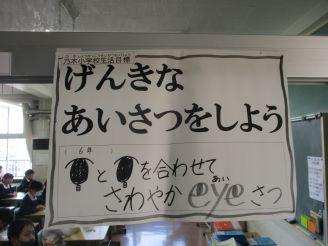 乃木小学校生活目標
げんきな
あいさつをしよう
(6年)
と を合わせて
さわやか eyeさつ
あい